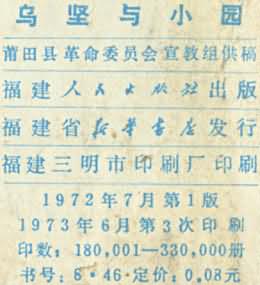 乌坚与小园
莆田县革命委员会宣教组供稿
福建人民出版社出版
福建省新华书店发行
福建三明市印刷厂印刷
1972年7月第1版
1973年6月第3次印刷
印数：180,001—330,000册
书号：8·46·定价：0.08元